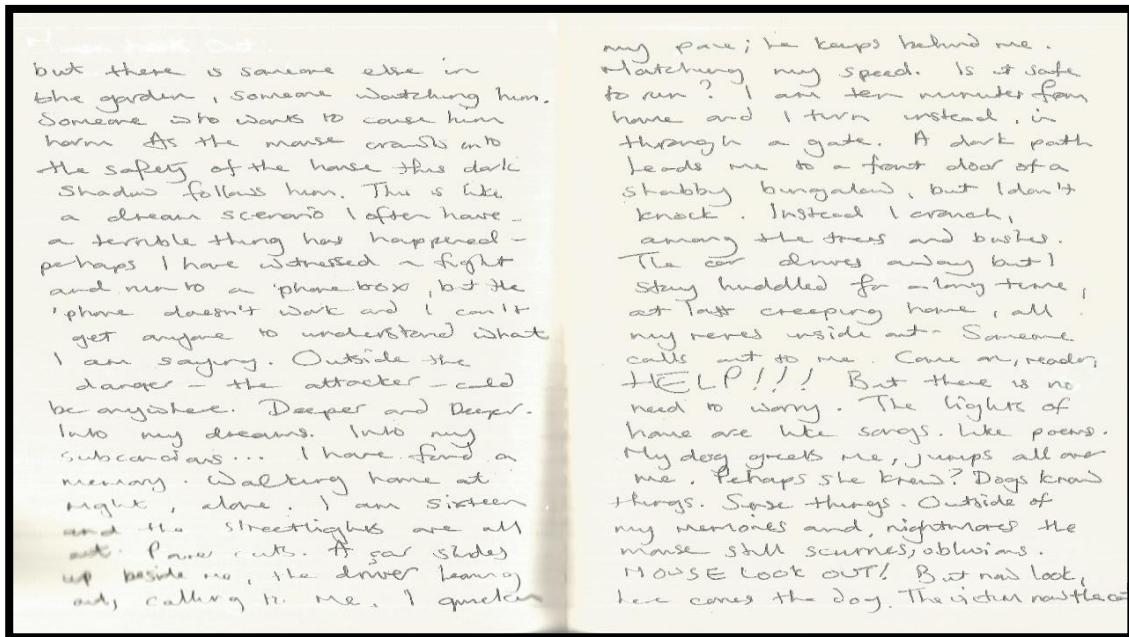 Mouse Look Out!
but there is someone else in
the garden, someone watching him.
Someone who wants to cause him
harm As the mouse crawls into
the safety of the house this dark
shadow follows him. This is like
a dream scenario I often have -
a terrible thing has happened -
perhaps I have witnessed a fight
and run to a 'phone box, but the
'phone doesn't work and I can't
get anyone to understand what
I am saying. Outside the
danger - the attacker - could
be anywhere. Deeper and Deeper.
Into my dreams. Into my
subconscious... I have found a
memory. Walking home at
night, alone. I am sixteen
and the streetlights are all
out. Power cuts. A car slides
up beside me, the driver leaning
out, calling to me. I quicken
my pace; he keeps behind me.
Matching my speed. Is it safe
to run? I am ten minutes from
home and I turn instead, in
through a gate. A dark path
leads me to a front door of a
shabby bungalow, but I don't
knock. Instead I crouch,
among the trees and bushes.
The car drives away but I
stay huddled for a long time,
at last creeping home, all
my nerves inside out - Someone
calls out to me. Come on, reader,
HELP!!! But there is no
need to worry. The lights of
home are like songs. Like poems.
My dog greets me, jumps all over
me. Perhaps she knew? Dogs know
things. Sense things. Outside of
my memories and nightmares the
mouse still scurries, oblivious.
MOUSE LOOK OUT! But now look,
here comes the dog. The victim now the cat